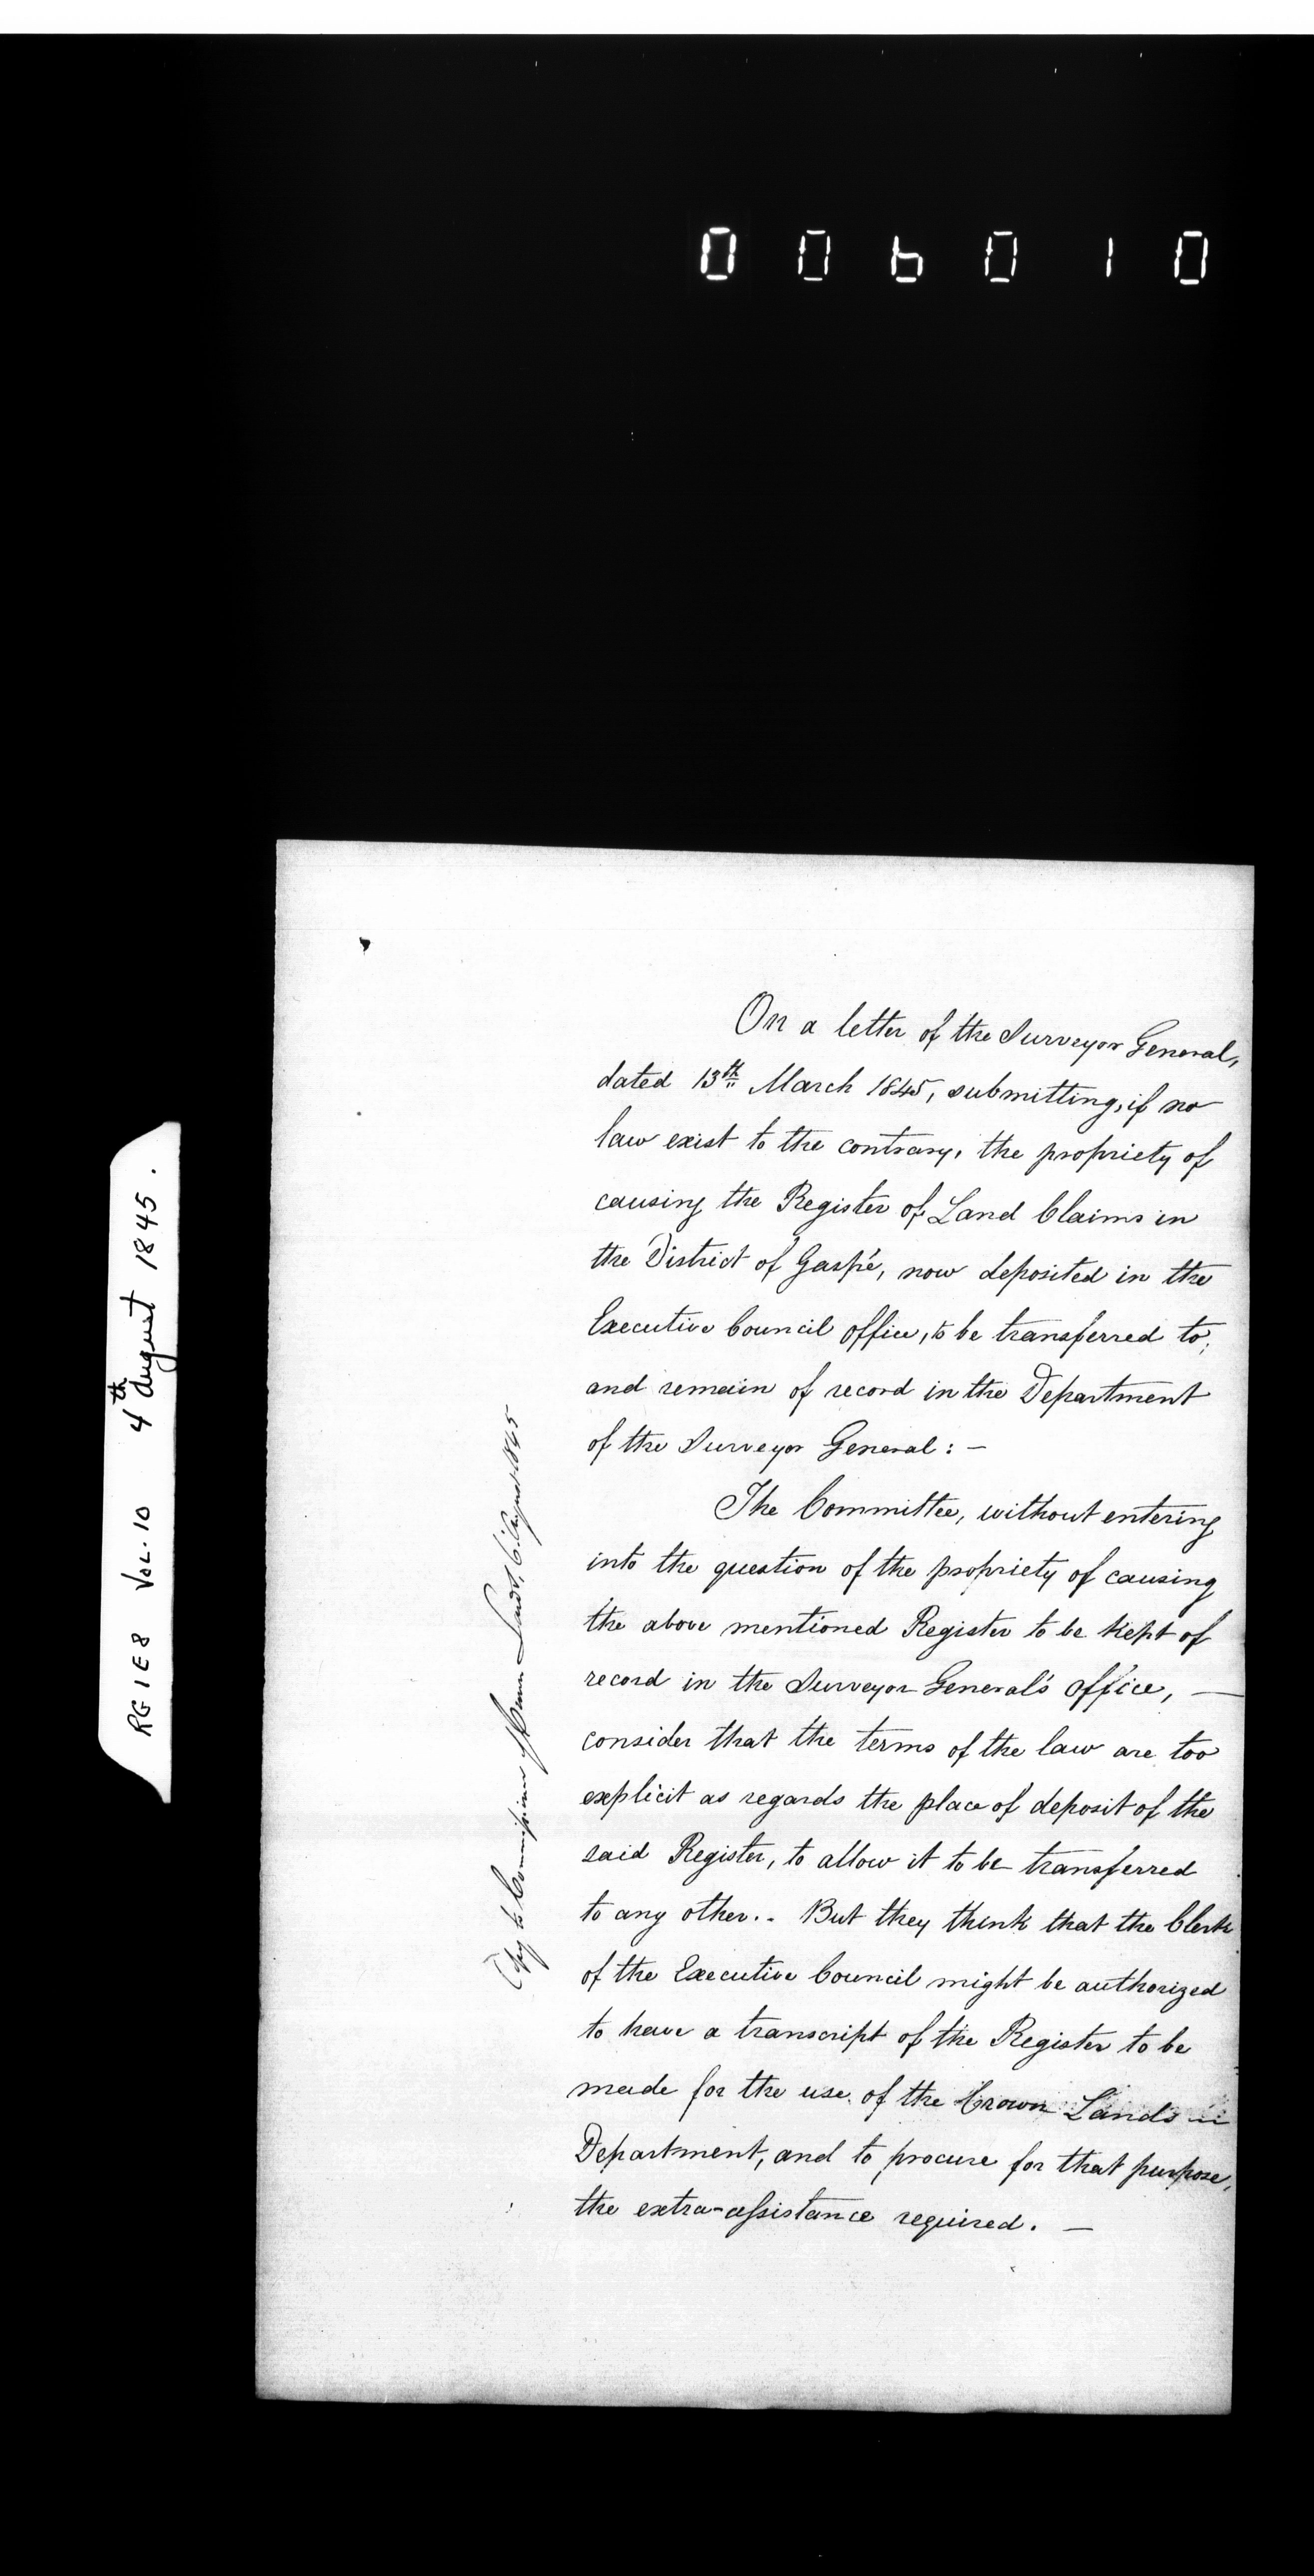 006010
RG 1 E 8 Vol. 10 4th August 1845.
On a letter of the Surveyor General,
dated 13th March 1845, submitting, if no
law exist to the contrary, the propriety of
causing the Register of Land Claims in
the District of Gaspé, now deposited in the
Executive Council office, to be transferred to,
and remain of record in the Department
of the Surveyor General : —
The Committee, without entering
into the question of the propriety of causing
the above mentioned Register to be kept of
record in the Surveyor General's Office, —
consider that the terms of the law are too
explicit as regards the place of deposit of the
said Register, to allow it to be transferred
to any other. . But they think that the Clerk
of the Executive Council might be authorized
to have a transcript of the Register to be
made for the use of the Crown Lands
Department, and to procure for that purpose,
the extra-assistance required. —
to Commissioner of Crown Lands, August 1845